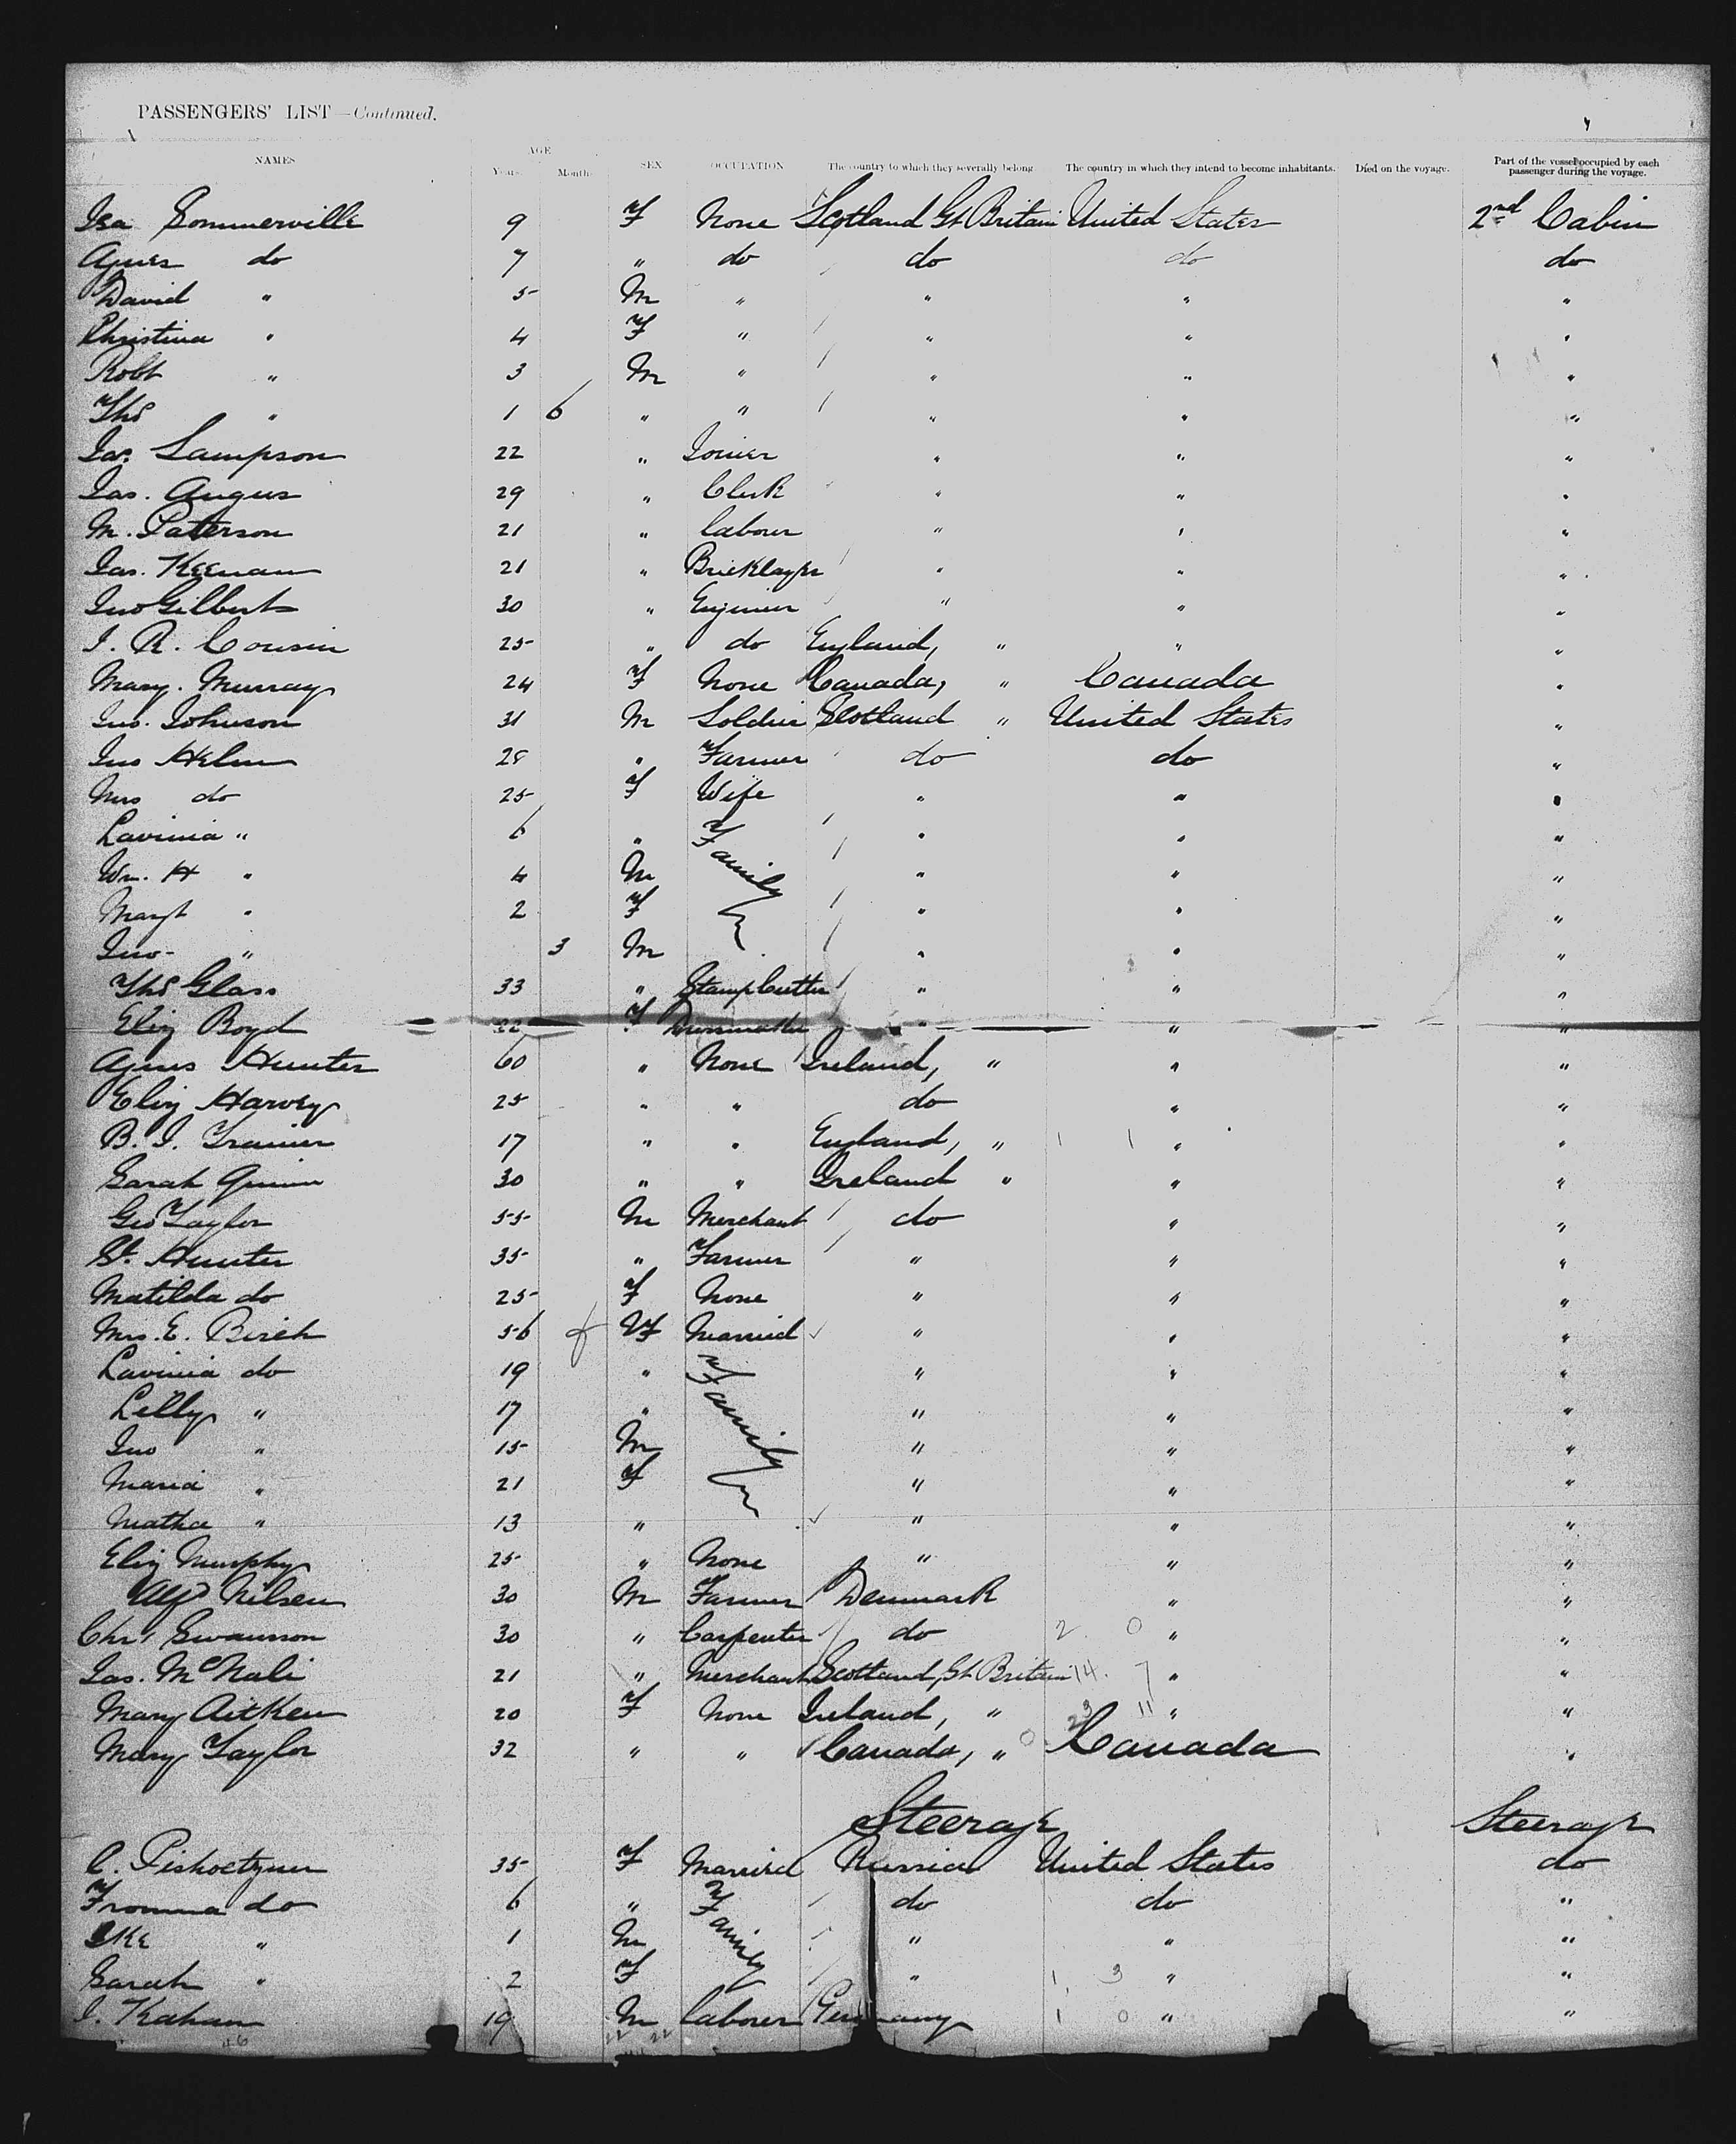 PASSENGERS' LIST—Continued.
NAMES AGE Years. Months. SEX OCCUPATION The country to which they severally belong. The country in which they intend to become inhabitants. Died on the voyage. Part of the vessel occupied by each passenger during the voyage.
Isa Sommerville 9 F None Scotland Gt Britain United States 2nd Cabin
Agnes do 7 " do do do do
David " 5 M " " " "
Christina " 4 F " " " "
Robt " 3 M " " " "
Thos " 1 6 " " " " "
Jas. Sampson 22 " Joiner " " "
Jas. Angus 29 " Clerk " " "
M. Paterson 21 " Labourer " " "
Jas. Keenan 21 " Bricklayer " " "
Jno Gilbert 30 " Engineer " " "
J. R. Cousin 25 " do England, " " "
Mary. Murray 24 F None Canada, " Canada "
Jno. Johnson 31 M Soldier Scotland " United States "
Jno Helm 28 " Farmer do do "
Mrs do 25 F Wife " " "
Lavinia " 6 " Family " " "
Wm. H " 4 M " " "
Margt " 2 F " " "
Jno. " 3 M " " "
Thos Glass 33 " Stamp Cutter " " "
Eliz Boyd 22 F Dressmaker " " "
Agnes Hunter 60 " None Ireland, " " "
Eliz Harvey 25 " " do " "
B. J. 17 " " England, " " "
Sarah Quinn 30 " " Ireland " " "
Geo Taylor 55 M Merchant do " "
Hunter 35 " Farmer " " "
Matilda do 25 F None " " "
Mrs. E. Birch 56 F Married " " "
Lavinia do 19 " Family " " "
Lilly " 17 " " " "
Jno " 15 M " " "
Maria " 21 F " " "
Matha " 13 " " " "
Eliz Murphy 25 " None " " "
Alf Nilsen 30 M Farmer Denmark " "
Chr. Swanson 30 " Carpenter do 2 0 " "
Jas. McNali 21 " Merchant Scotland, Gt Britain 14. 7 " "
Mary Aitken 20 F None Ireland, " 23 11 " "
Mary Taylor 32 " " Canada, " 0 Canada "
Steerage Steerage
C. 35 F Married Russia United States do
Fromma do 6 " Family do do "
Ike " 1 M " " "
Sarah " 2 F " 1 3 " "
J. Kahan 19 M Laborer Germany 1 0 " "
46 22 22